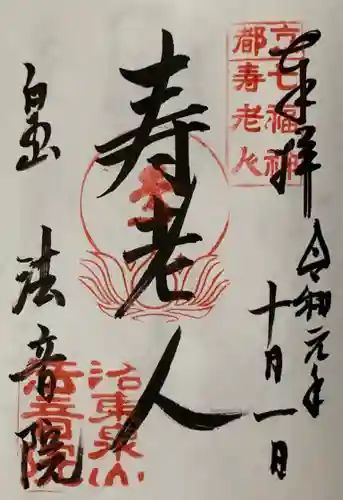 奉拝
令和元年
十月一日
京都
七福神
寿老人
寿老人
洛東泉山
法音院
泉山 法音院